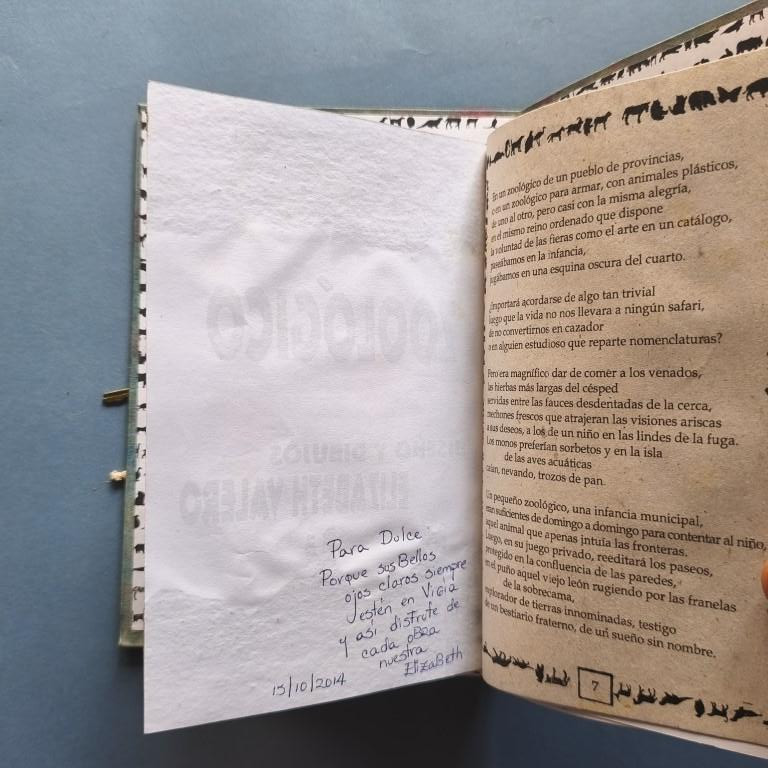 ZOOLÓGICO
DISEÑO Y DIBUJOS
ELIZABETH VALERO
Para Dolce
Porque sus Bellos
ojos claros siempre
estén en Vigía
y así disfrute de
cada oBra
nuestra
ElizaBeth
15/10/2014
En un zoológico de un pueblo de provincias,
o en un zoológico para armar, con animales plásticos,
de uno al otro, pero casi con la misma alegría,
en el mismo reino ordenado que dispone
la voluntad de las fieras como el arte en un catálogo,
paseábamos en la infancia,
jugábamos en una esquina oscura del cuarto.
¿Importará acordarse de algo tan trivial
luego que la vida no nos llevara a ningún safari,
de no convertirnos en cazador
o en alguien estudioso que reparte nomenclaturas?
Pero era magnífico dar de comer a los venados,
las hierbas más largas del césped
servidas entre las fauces desdentadas de la cerca,
mechones frescos que atrajeran las visiones ariscas
a sus deseos, a los de un niño en las lindes de la fuga.
Los monos preferían sorbetos y en la isla
de las aves acuáticas
caían, nevando, trozos de pan.
Un pequeño zoológico, una infancia municipal,
eran suficientes de domingo a domingo para contentar al niño,
aquel animal que apenas intuía las fronteras.
Luego, en su juego privado, reeditará los paseos,
protegido en la confluencia de las paredes,
en el puño aquel viejo león rugiendo por las franelas
de la sobrecama,
explorador de tierras innominadas, testigo
de un bestiario fraterno, de un sueño sin nombre.
7